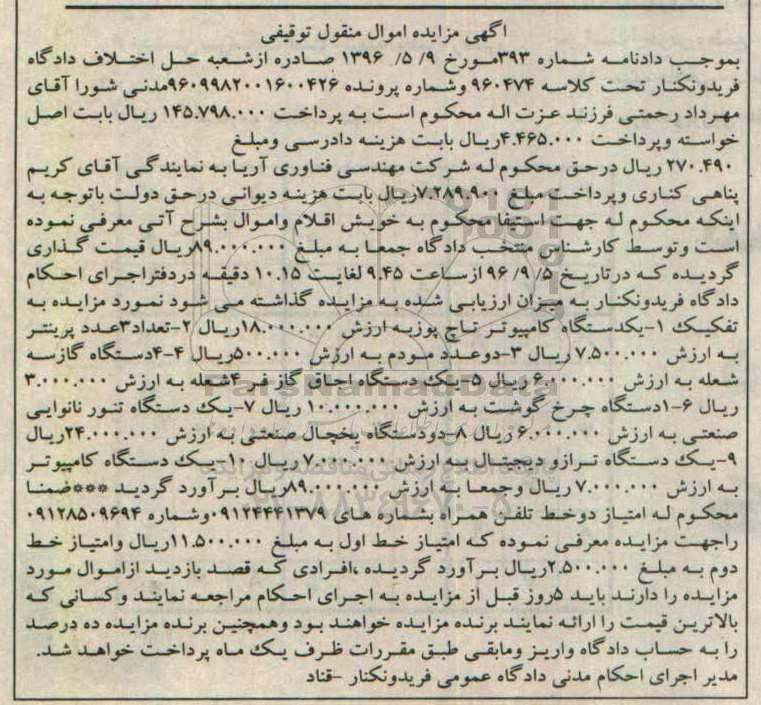 آگهی مزایده اموال منقول توقیفی
بموجب دادنامه شماره ۳۹۳مورخ ۹/ ۵/ ۱۳۹۶ صادره ازشعبه حل اختلاف دادگاه
فریدونکنار تحت کلاسه ۹۶۰۴۷۴ وشماره پرونده ۹۶۰۹۹۸۲۰۰۱۶۰۰۴۲۶مدنی شورا آقای
مهرداد رحمتی فرزند عزت اله محکوم است به پرداخت ۱۴۵.۷۹۸.۰۰۰ ریال بابت اصل
خواسته وپرداخت ۴.۴۶۵.۰۰۰ریال بابت هزینه دادرسی ومبلغ
۲۷۰.۴۹۰ ریال درحق محکوم له شرکت مهندسی فناوری آریا به نمایندگی آقای کریم
پناهی کناری وپرداخت مبلغ ۷.۲۸۹.۹۰۰ریال بابت هزینه دیوانی درحق دولت باتوجه به
اینکه محکوم له جهت استیفا محکوم به خویش اقلام واموال بشرح آتی معرفی نموده
است وتوسط کارشناس منتخب دادگاه جمعا به مبلغ ۸۹.۰۰۰.۰۰۰ریال قیمت گذاری
گردیده که درتاریخ ۵/ ۹/ ۹۶ ازساعت ۹.۴۵ لغایت ۱۰.۱۵ دقیقه دردفتراجرای احکام
دادگاه فریدونکنار به میزان ارزیابی شده به مزایده گذاشته می شود نمورد مزایده به
تفکیک ۱-یکدستگاه کامپیوتر تاچ پوزبه ارزش ۱۸.۰۰۰.۰۰۰ریال ۲-تعداد۳عدد پرینتر
به ارزش ۷.۵۰۰.۰۰۰ ریال ۳-دوعدد مودم به ارزش ۵۰۰.۰۰۰ریال ۴-۴دستگاه گازسه
شعله به ارزش ۶.۰۰۰.۰۰۰ ریال ۵-یک دستگاه اجاق گاز فر ۴شعله به ارزش ۳.۰۰۰.۰۰۰
ریال ۶-۱دستگاه چرخ گوشت به ارزش ۱۰.۰۰۰.۰۰۰ ریال ۷-یک دستگاه تنور نانوایی
صنعتی به ارزش ۶.۰۰۰.۰۰۰ ریال ۸-دودستگاه یخچال صنعتی به ارزش ۲۴.۰۰۰.۰۰۰ریال
۹-یک دستگاه ترازو دیجیتال به ارزش ۷.۰۰۰.۰۰۰ ریال ۱۰-یک دستگاه کامپیوتر
به ارزش ۷.۰۰۰.۰۰۰ ریال وجمعا به ارزش ۸۹.۰۰۰.۰۰۰ریال برآورد گردید ***ضمنا
محکوم له امتیاز دوخط تلفن همراه بشماره های ۰۹۱۲۴۴۴۱۳۷۹وشماره ۰۹۱۲۸۵۰۹۶۹۴
راجهت مزایده معرفی نموده که امتیاز خط اول به مبلغ ۱۱.۵۰۰.۰۰۰ریال وامتیاز خط
دوم به مبلغ ۲.۵۰۰.۰۰۰ریال برآورد گردیده ،افرادی که قصد بازدید ازاموال مورد
مزایده را دارند باید ۵روز قبل از مزایده به اجرای احکام مراجعه نمایند وکسانی که
بالاترین قیمت را ارائه نمایند برنده مزایده خواهند بود وهمچنین برنده مزایده ده درصد
را به حساب دادگاه واریز ومابقی طبق مقررات ظرف یک ماه پرداخت خواهد شد.
مدیر اجرای احکام مدنی دادگاه عمومی فریدونکنار -قناد
ParsNamadData